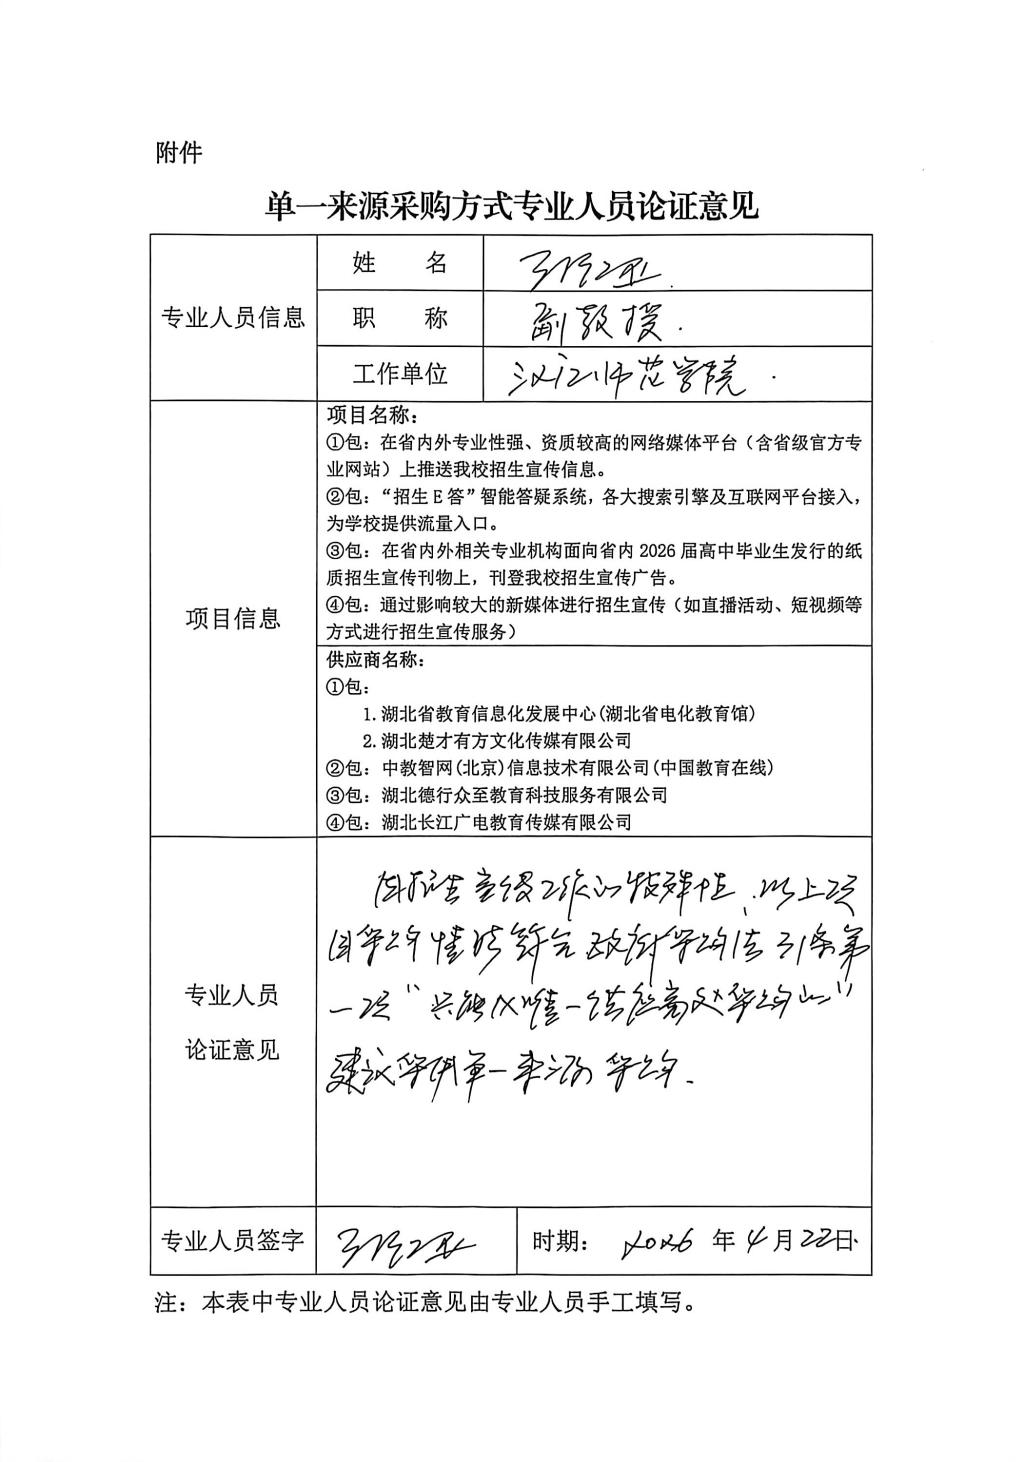 附件
单一来源采购方式专业人员论证意见
专业人员信息
姓 名
职 称
副教授.
工作单位
汉江师范学院.
项目信息
项目名称：
①包：在省内外专业性强、资质较高的网络媒体平台（含省级官方专
业网站）上推送我校招生宣传信息。
②包：“招生E答”智能答疑系统，各大搜索引擎及互联网平台接入，
为学校提供流量入口。
③包：在省内外相关专业机构面向省内2026届高中毕业生发行的纸
质招生宣传刊物上，刊登我校招生宣传广告。
④包：通过影响较大的新媒体进行招生宣传（如直播活动、短视频等
方式进行招生宣传服务）
供应商名称：
①包：
1.湖北省教育信息化发展中心(湖北省电化教育馆)
2.湖北楚才有方文化传媒有限公司
②包：中教智网(北京)信息技术有限公司(中国教育在线)
③包：湖北德行众至教育科技服务有限公司
④包：湖北长江广电教育传媒有限公司
专业人员
论证意见
因招生宣传工作的特殊性，以上项
目采购情形符合政府采购法31条第
一项“只能从唯一供应商处采购的”
建议采用单一来源采购.
专业人员签字
时期： 2026 年 4 月 22 日
注：本表中专业人员论证意见由专业人员手工填写。